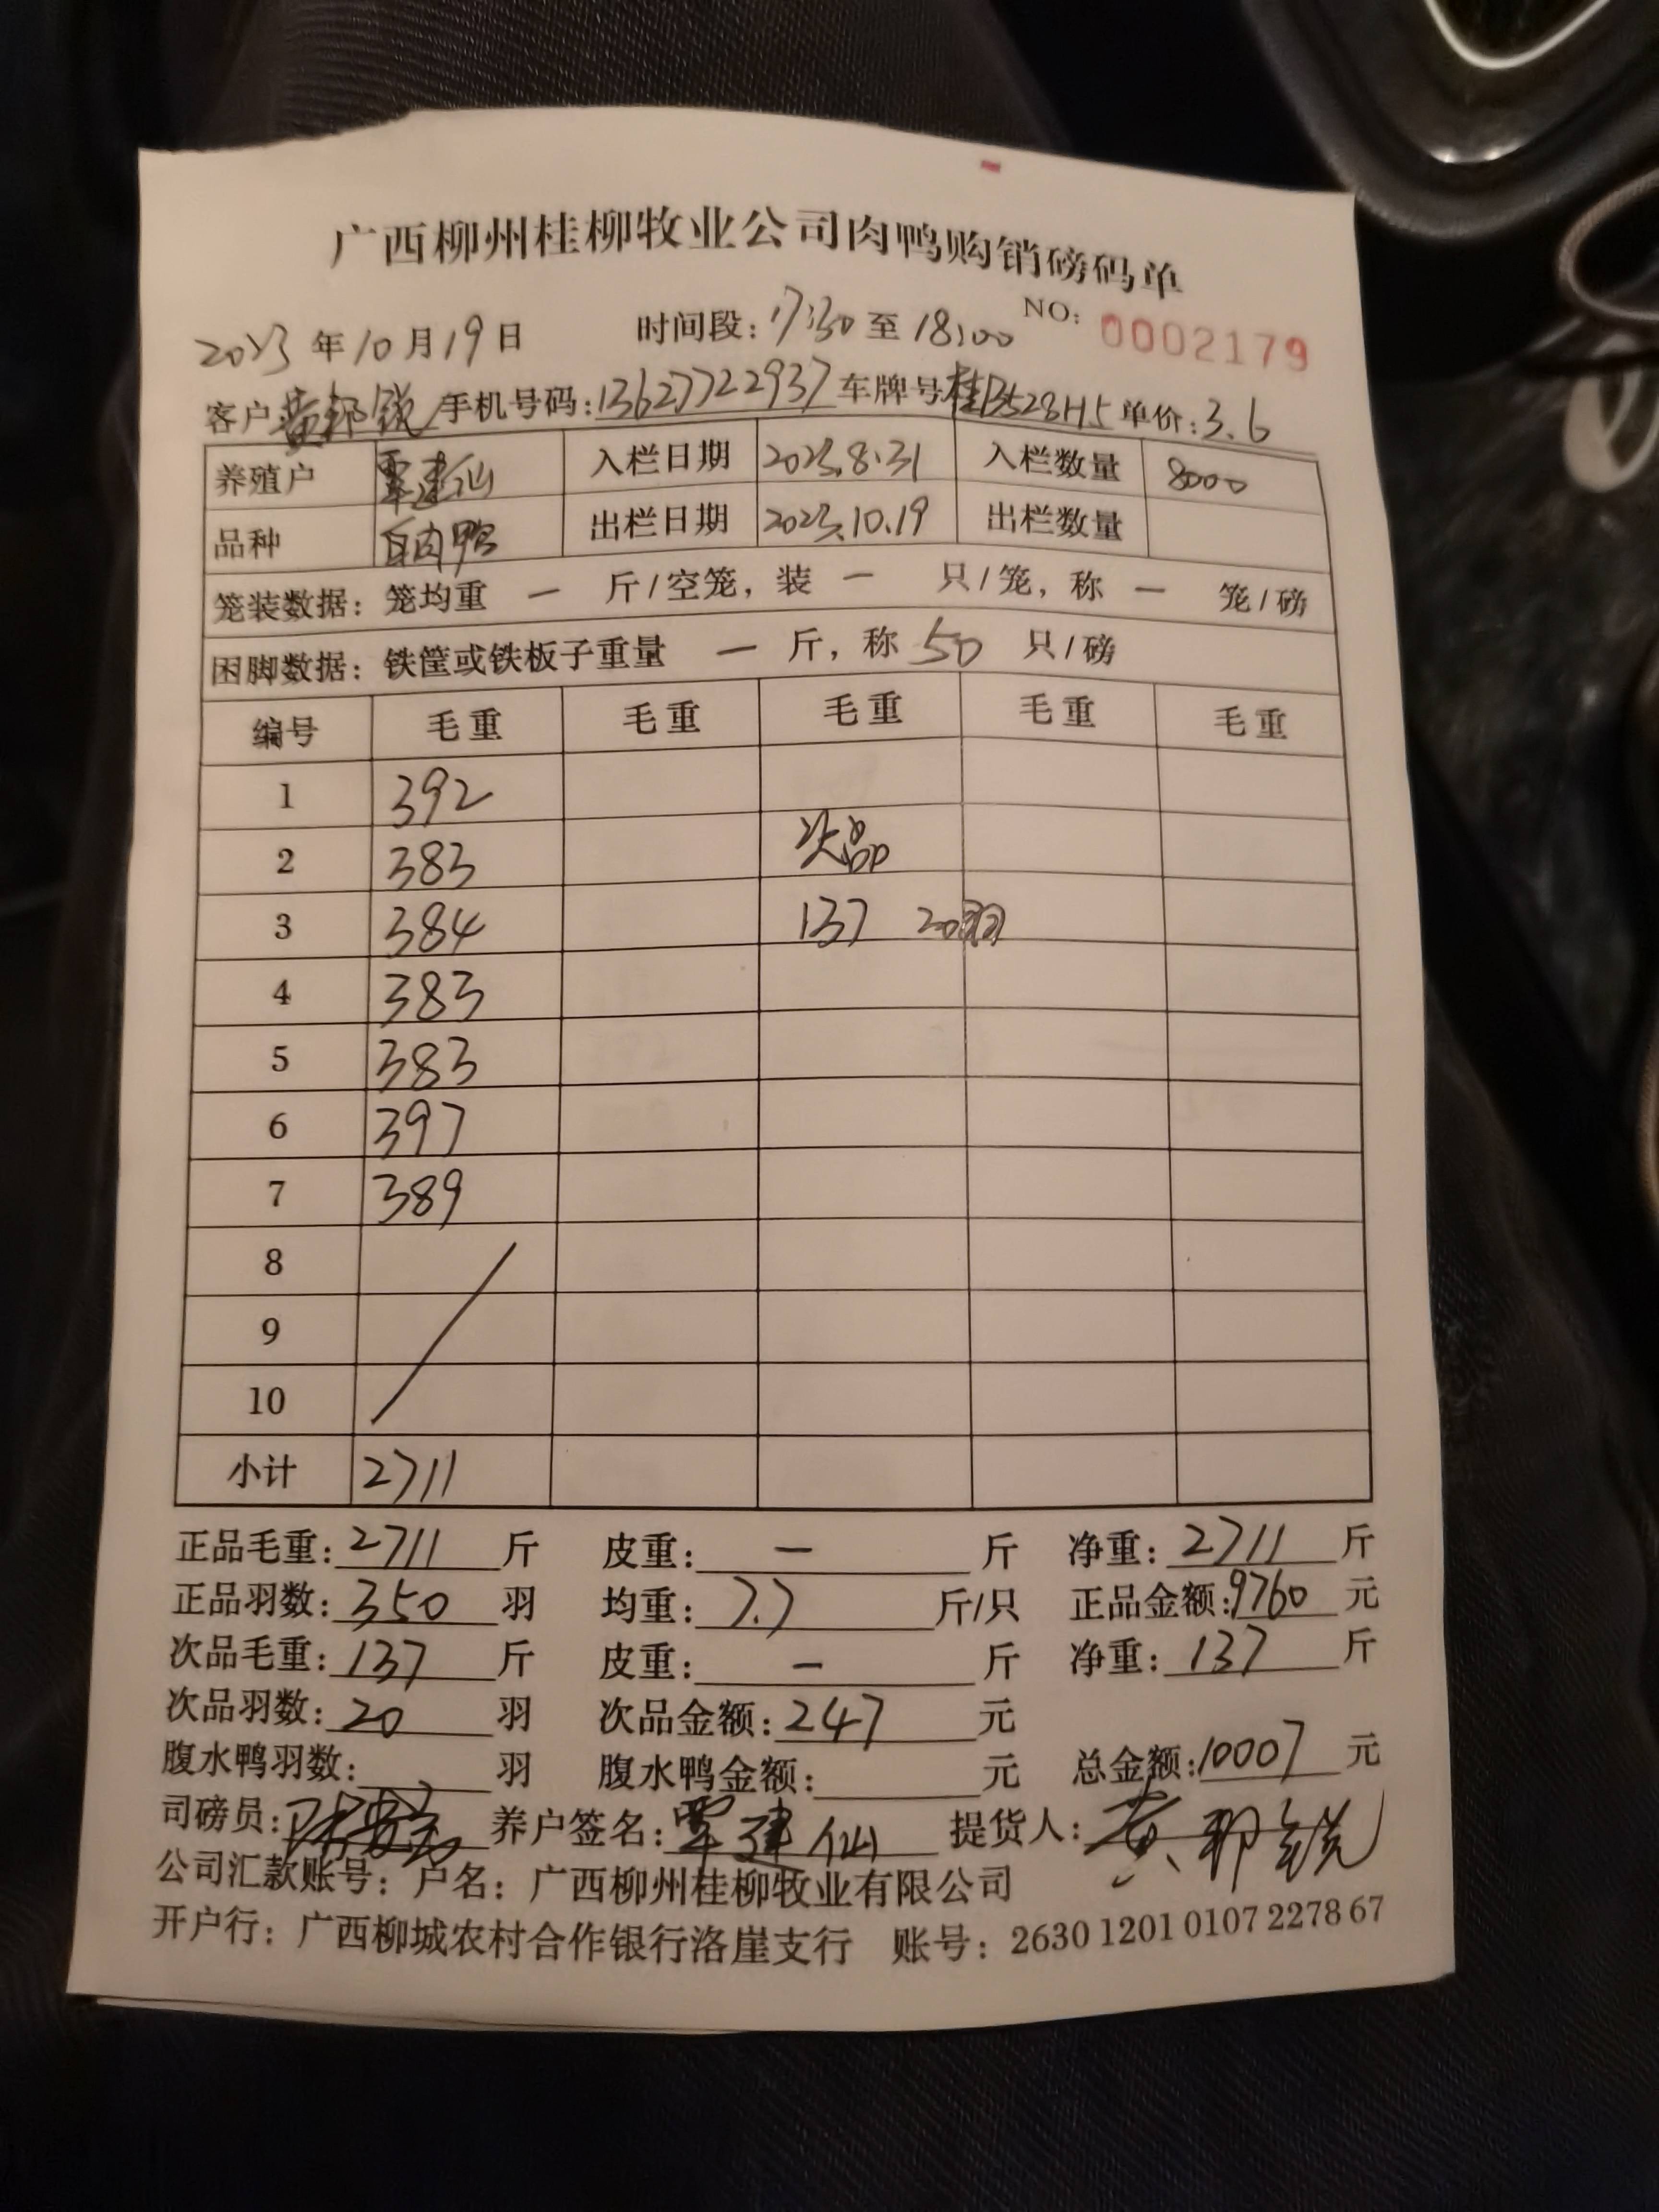 广西柳州桂柳牧业公司肉鸭购销磅码单
2023年10月19日 时间段：17:30至18:00 NO：0002179
客户黄邦锐手机号码：13627722937车牌号桂B528H5单价：3.6
养殖户 覃建仙 入栏日期 2023.8.31 入栏数量 8000
品种 白肉鸭 出栏日期 2023.10.19 出栏数量
笼装数据：笼均重 一 斤/空笼，装 一 只/笼，称 一 笼/磅
困脚数据：铁筐或铁板子重量 一 斤，称 50 只/磅
编号 毛重 毛重 毛重 毛重 毛重
1 392
2 383 次品
3 384 137 20羽
4 383
5 383
6 397
7 389
8
9
10
小计 2711
正品毛重：2711斤 皮重：一斤 净重：2711斤
正品羽数：350羽 均重：7.7斤/只 正品金额：9760元
次品毛重：137斤 皮重：一斤 净重：137斤
次品羽数：20羽 次品金额：247元
腹水鸭羽数：羽 腹水鸭金额：元 总金额：10007元
司磅员： 养户签名：覃建仙 提货人：黄邦锐
公司汇款账号：户名：广西柳州桂柳牧业有限公司
开户行：广西柳城农村合作银行洛崖支行 账号：2630 1201 0107 2278 67